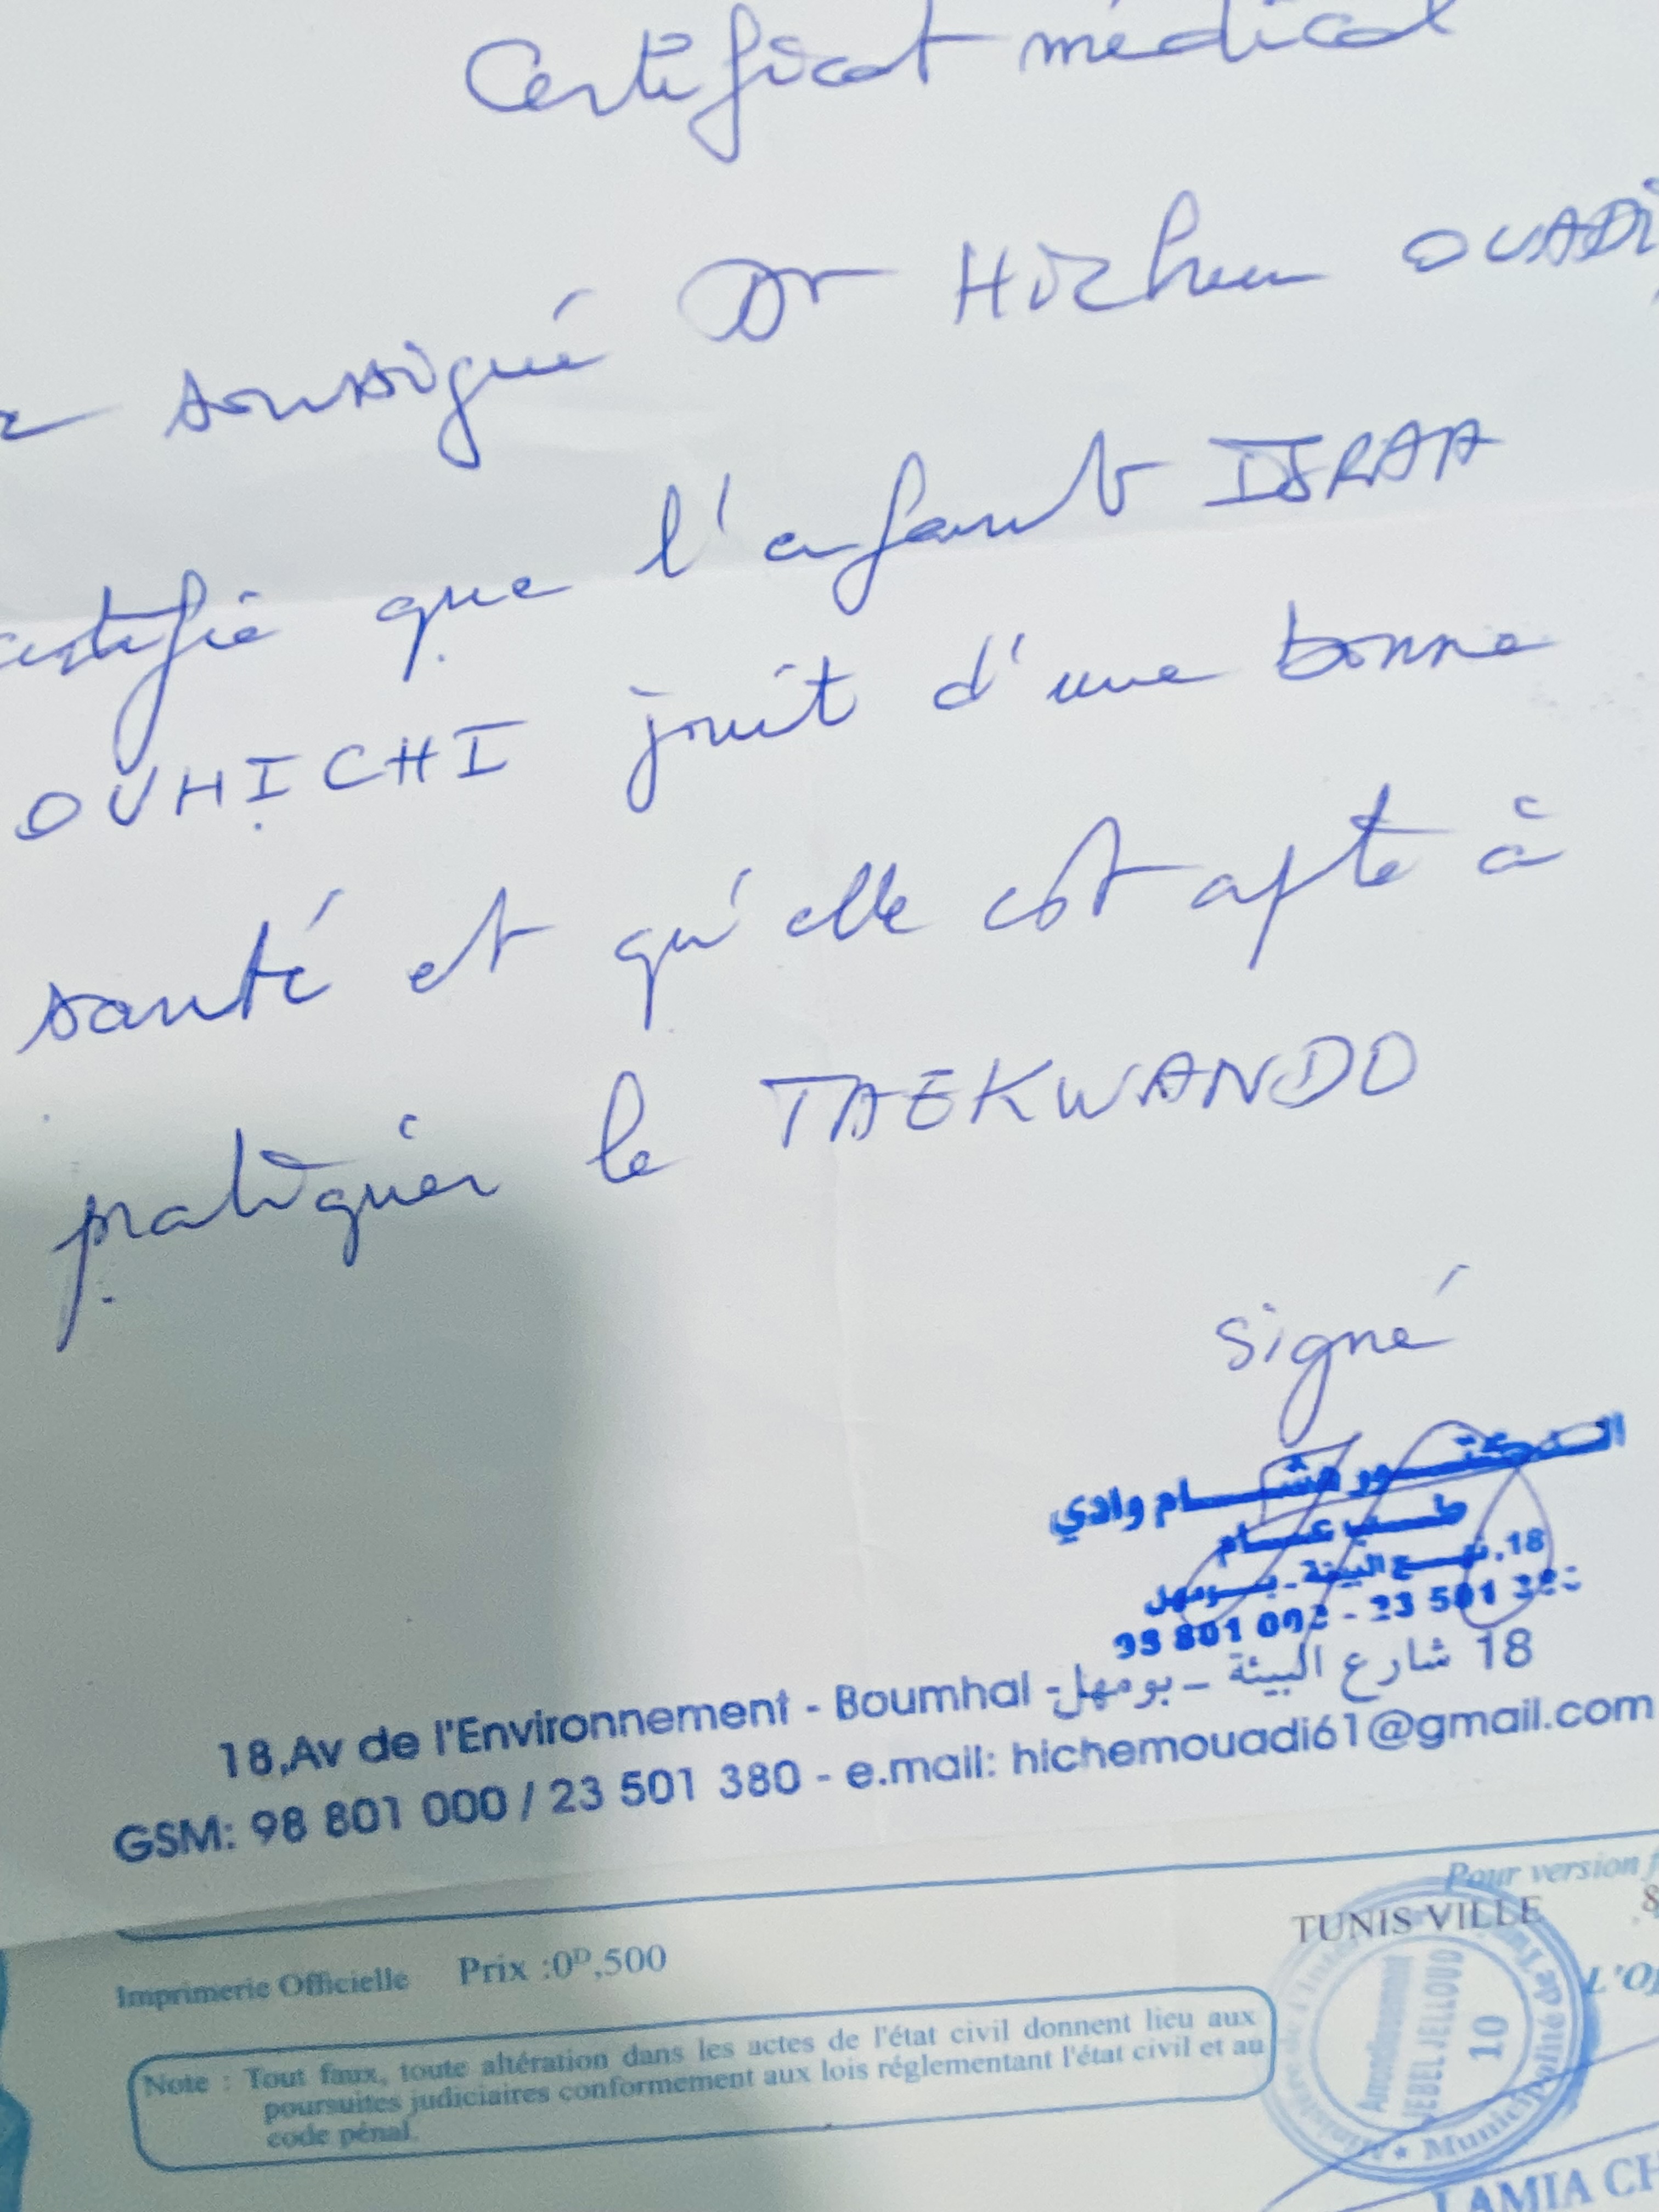 Certificat médical
soussigné Dr Hichem OUADI
certifie que l'enfant ISRAA
OUHICHI jouit d'une bonne
santé et qu'elle est apte à
pratiquer le TAEKWANDO
signé
الدكتور هشام وادي
طب عام
18، شارع البيئة - بومهل
18,Av de l'Environnement - Boumhal - بومهل - شارع البيئة 18
GSM: 98 801 000 / 23 501 380 - e.mail: hichemouadi61@gmail.com
Pour version
TUNIS VILLE
Imprimerie Officielle Prix :0ᴰ,500
Note : Tout faux, toute altération dans les actes de l'état civil donnent lieu aux
poursuites judiciaires conformement aux lois réglementant l'état civil et au
code pénal.
Arrondissement
JEBEL JELLOUD
10
LAMIA